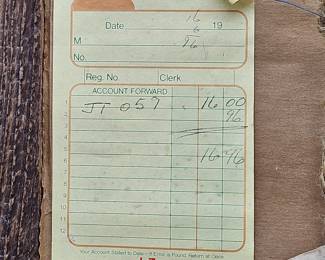 16
Date 6 19
M 96
No.
Reg. No. Clerk
ACCOUNT FORWARD
1 JT 057 . 16 00
2 96
3
4
5 16 96
6
7
8
9
10
11
12
Your Account Stated to Date - If Error is Found, Return at Once